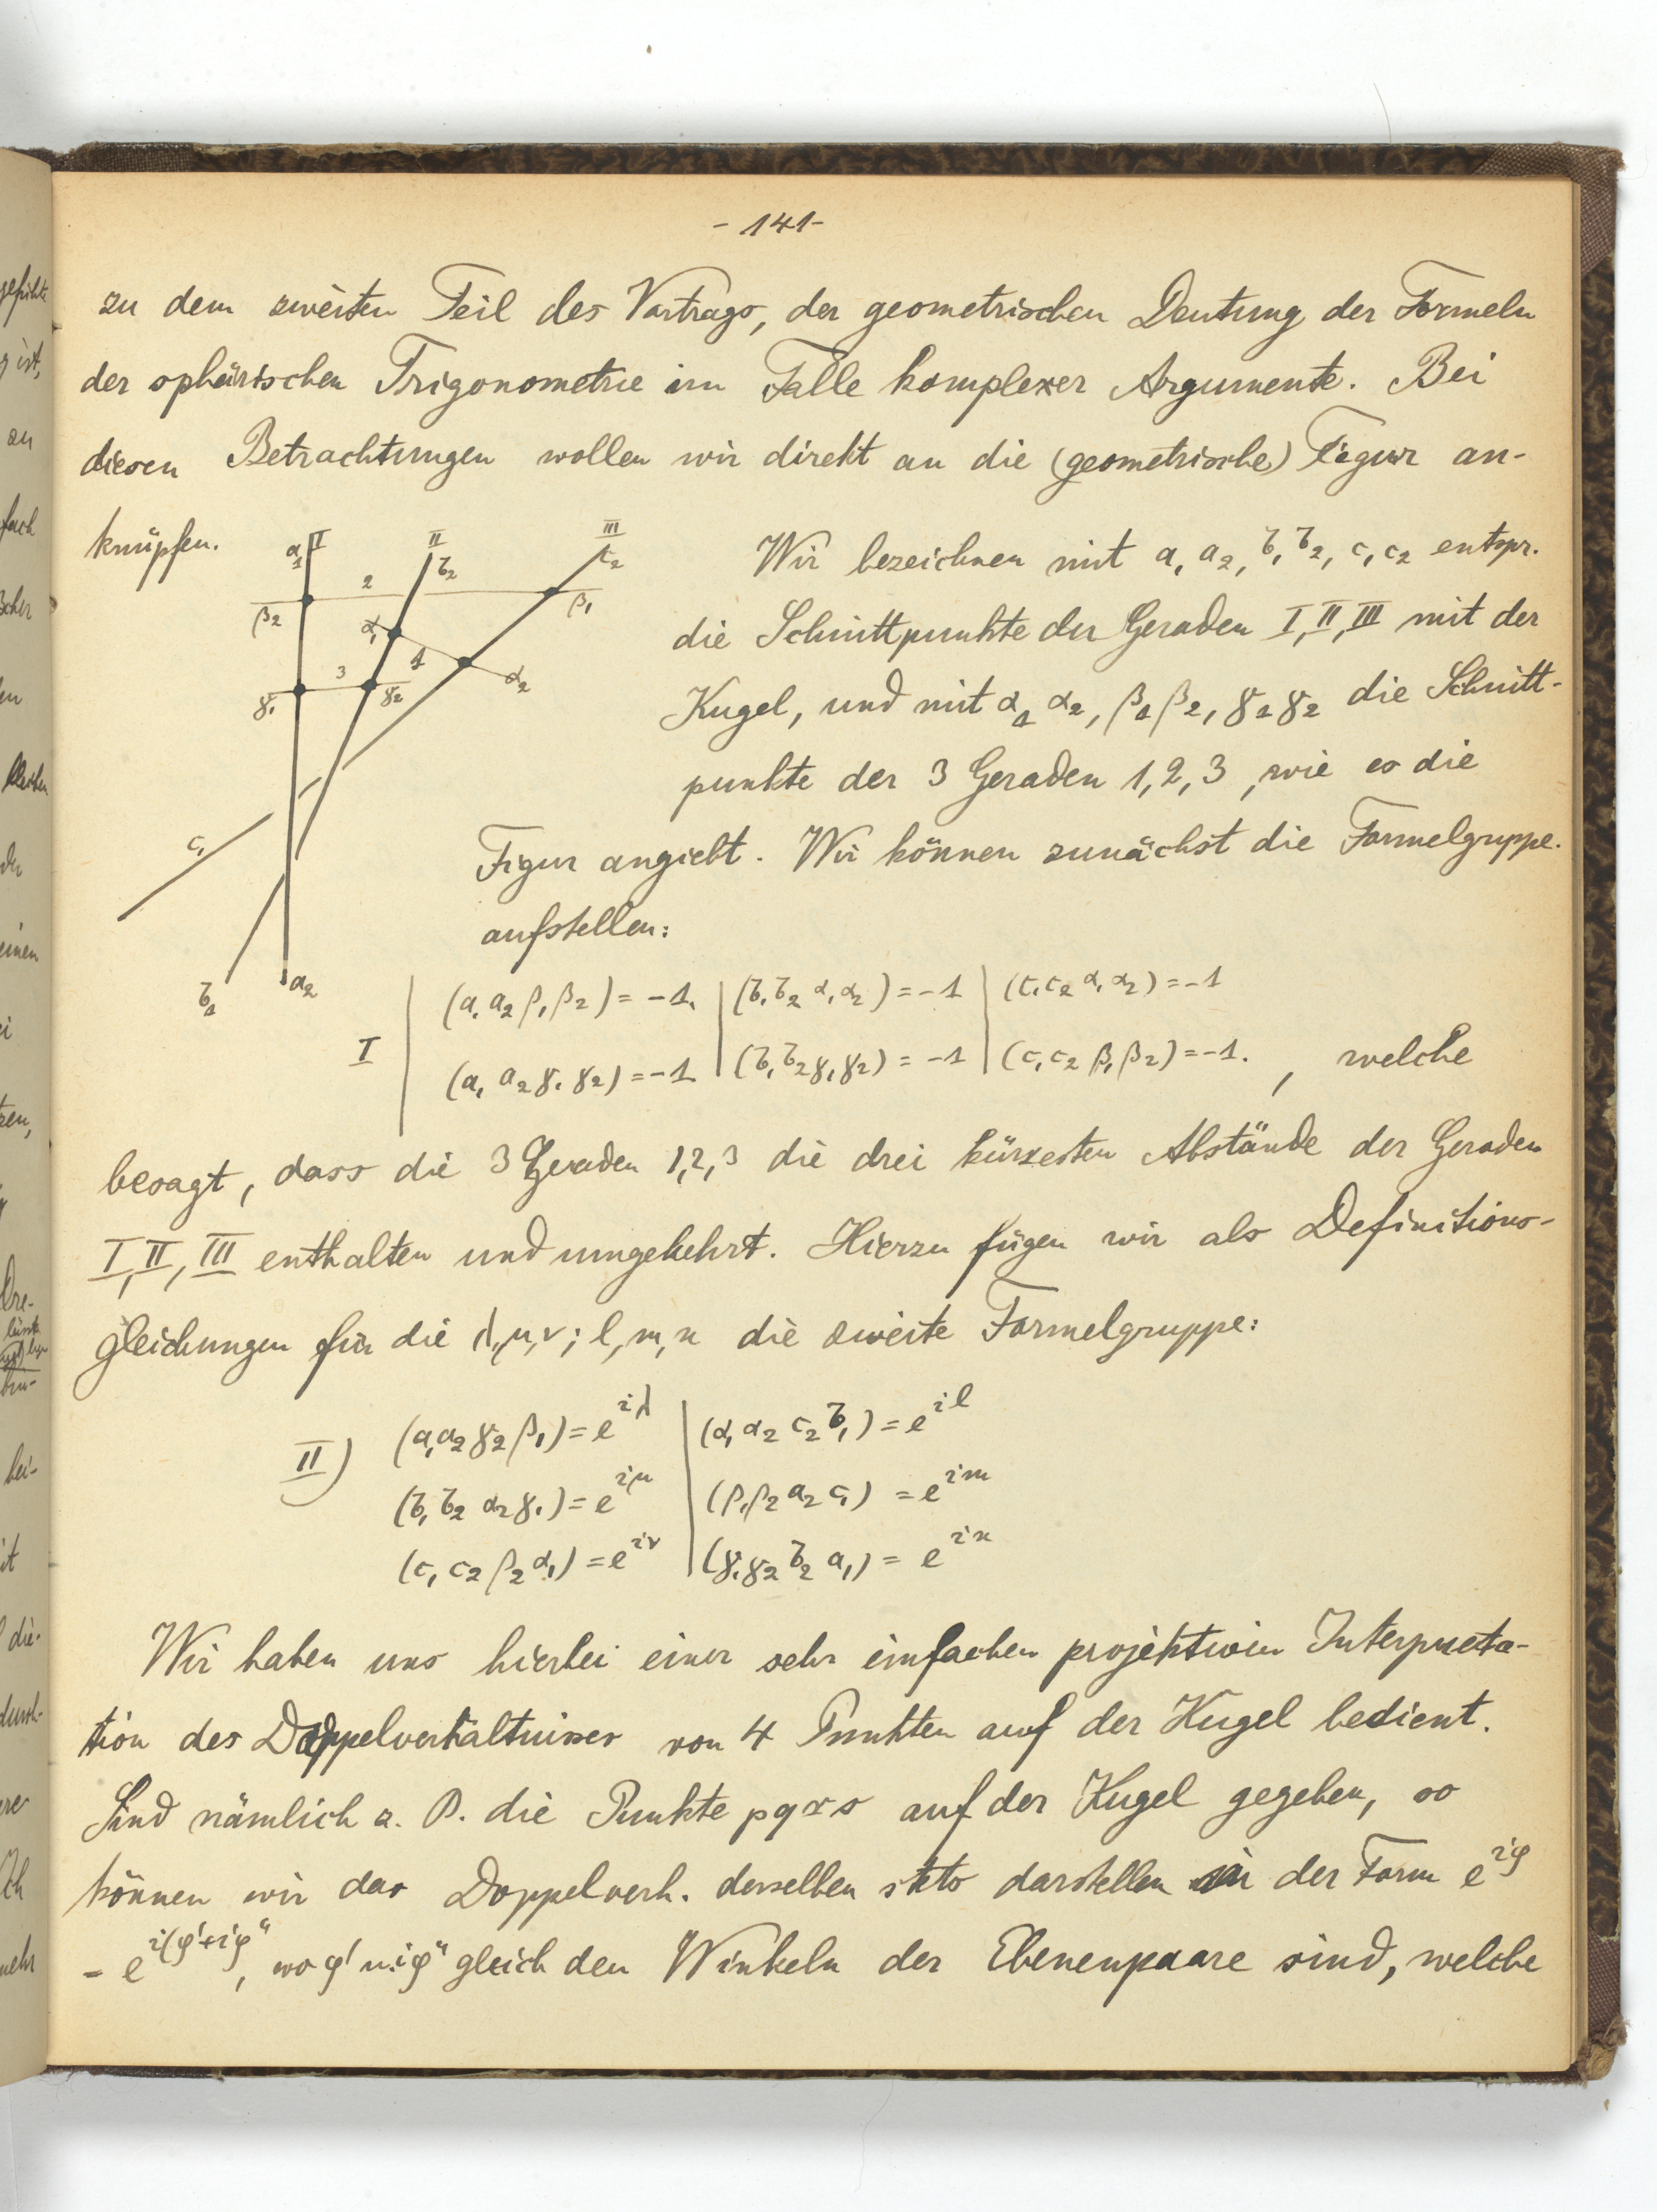 - 141 -
zu dem zweiten Teil des Vortrags, der geometrischen Deutung der Formeln
der sphärischen Trigonometrie im Falle komplexer Argumente. Bei
diesen Betrachtungen wollen wir direkt an die (geometrische) Figur an-
knüpfen.
α₁ I II III
b₂ c₂
2
β₂ β₁
α₁ 1
3 α₂
γ₁ γ₂
c₁
b₁ a₂
Wir bezeichnen mit a₁ a₂, b₁ b₂, c₁ c₂ entspr.
die Schnittpunkte der Geraden I, II, III mit der
Kugel, und mit α₁ α₂, β₁ β₂, γ₁ γ₂ die Schnitt-
punkte der 3 Geraden 1, 2, 3, wie es die
Figur angiebt. Wir können zunächst die Formelgruppe
aufstellen:
(a₁ a₂ β₁ β₂) = -1. | (b₁ b₂ α₁ α₂) = -1 | (c₁ c₂ α₁ α₂) = -1
I
(a₁ a₂ γ₁ γ₂) = -1 | (b₁ b₂ γ₁ γ₂) = -1 | (c₁ c₂ β₁ β₂) = -1. , welche
besagt, dass die 3 Geraden 1, 2, 3 die drei kürzesten Abstände der Geraden
I, II, III enthalten und umgekehrt. Hierzu fügen wir als Definitions-
gleichungen für die λ, μ, ν; l, m, n die zweite Formelgruppe:
II) (a₁ a₂ γ₂ β₁) = e^{iλ} | (α₁ α₂ c₂ b₁) = e^{il}
(b₁ b₂ α₂ γ₁) = e^{iμ} | (β₁ β₂ a₂ c₁) = e^{im}
(c₁ c₂ β₂ α₁) = e^{iν} | (γ₁ γ₂ b₂ a₁) = e^{in}
Wir haben uns hierbei einer sehr einfachen projektiven Interpreta-
tion des Doppelverhältnisses von 4 Punkten auf der Kugel bedient.
Sind nämlich z. B. die Punkte p q r s auf der Kugel gegeben, so
können wir das Doppelverh. derselben stets darstellen in der Form e^{iφ}
= e^{i(φ'+iφ"}, wo φ' u. iφ" gleich den Winkeln der Ebenenpaare sind, welche